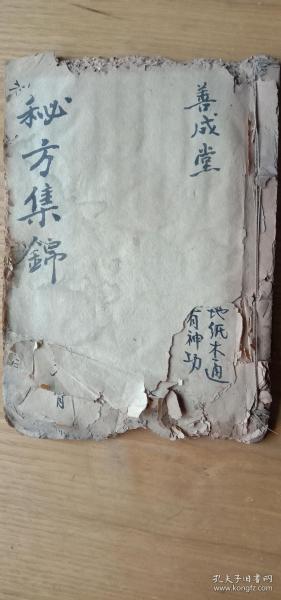 善成堂
秘方集錦
地紙木通
有神功
月
孔夫子旧书网
www.kongfz.com